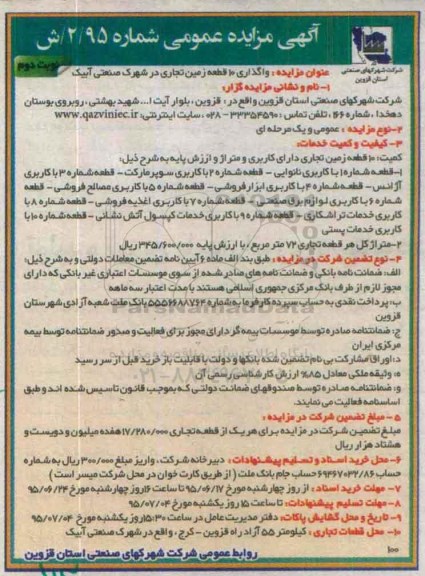 آگهی مزایده عمومی شماره ۲/۹۵/ش
نوبت دوم
شرکت شهرکهای صنعتی
استان قزوین
عنوان مزایده : واگذاری ۱۰ قطعه زمین تجاری در شهرک صنعتی آبیک
۱- نام و نشانی مزایده گزار:
شرکت شهرکهای صنعتی استان قزوین واقع در : قزوین ، بلوار آیت ا... شهید بهشتی ، روبروی بوستان
دهخدا ، شماره ۱۶۶ ، تلفن تماس : ۳۳۳۵۴۵۹۰ - ۰۲۸ ، سایت اینترنتی: www.qazviniec.ir
۲-نوع مزایده : عمومی و یک مرحله ای
۳- کیفیت و کمیت خدمات:
کمیت: ۱۰ قطعه زمین تجاری دارای کاربری و متراژ و ارزش پایه به شرح ذیل:
۱- قطعه شماره ۱ با کاربری نانوایی - قطعه شماره ۲ با کاربری سوپر مارکت - قطعه شماره ۳ با کاربری
آژانس - قطعه شماره ۴ با کاربری ابزار فروشی - قطعه شماره ۵ با کاربری مصالح فروشی - قطعه
شماره ۶ با کاربری لوازم برق صنعتی - قطعه شماره ۷ با کاربری اغذیه فروشی - قطعه شماره ۸ با
کاربری خدمات تراشکاری - قطعه شماره ۹ با کاربری خدمات کپسول آتش نشانی - قطعه شماره ۱۰ با
کاربری خدمات پستی
۲-متراژ کل هر قطعه تجاری ۷۲ متر مربع ، با ارزش پایه ۳۴۵/۶۰۰/۰۰۰ ریال
۴- نوع تضمین شرکت در مزایده : طبق بند الف ماده ۶ آیین نامه تضمین معاملات دولتی و به شرح ذیل:
الف: ضمانت نامه بانکی و ضمانت نامه های صادر شده از سوی موسسات اعتباری غیر بانکی که دارای
مجوز لازم از طرف بانک مرکزی جمهوری اسلامی هستند با مدت اعتبار سه ماهه
ب: پرداخت نقدی به حساب سپرده کارفرما به شماره ۵۵۵۶۶۸۸۷۶۴ بانک ملت شعبه آزادی شهرستان
قزوین
ج: ضمانتنامه صادره توسط موسسات بیمه گر دارای مجوز برای فعالیت و صدور ضمانتنامه توسط بیمه
مرکزی ایران
د: اوراق مشارکت بی نام تضمین شده بانکها و دولت با قابلیت باز خرید قبل از سر رسید
ه: وثیقه ملکی معادل ۸۵٪ ارزش کارشناسی رسمی آن
و: ضمانتنامه صادره توسط صندوقهای ضمانت دولتی که بموجب قانون تاسیس شده اند و طبق
اساسنامه فعالیت می نمایند.
۵ - مبلغ تضمین شرکت در مزایده :
مبلغ تضمین شرکت در مزایده برای هر یک از قطعه تجاری ۱۷/۲۸۰/۰۰۰ هفده میلیون و دویست و
هشتاد هزار ریال
۶- محل خرید اسناد و تسلیم پیشنهادات : دبیرخانه شرکت ، واریز مبلغ ۳۰۰/۰۰۰ ریال به شماره
حساب ۶۹۴۶۷۰۳۲/۸۶ حساب جام بانک ملت ( از طریق کارت خوان در محل شرکت میسر است )
۷- مهلت خرید اسناد : از روز چهارشنبه مورخ ۹۵/۰۶/۱۷ تا ساعت ۱۶ روز چهارشنبه مورخ ۹۵/۰۶/۲۴
۸- مهلت تسلیم پیشنهادات: تا ساعت ۱۵ روز یکشنبه مورخ ۹۵/۰۷/۰۴
۹- تاریخ و محل گشایش پاکات: دفتر مدیریت عامل در ساعت ۱۵:۳۰ روز یکشنبه مورخ ۹۵/۰۷/۰۴
۱۰- محل قطعات تجاری : کیلومتر ۵۵ آزاد راه قزوین - کرج ، واقع در شهرک صنعتی آبیک
روابط عمومی شرکت شهرکهای صنعتی استان قزوین
۱۰۰
ParsNamadData